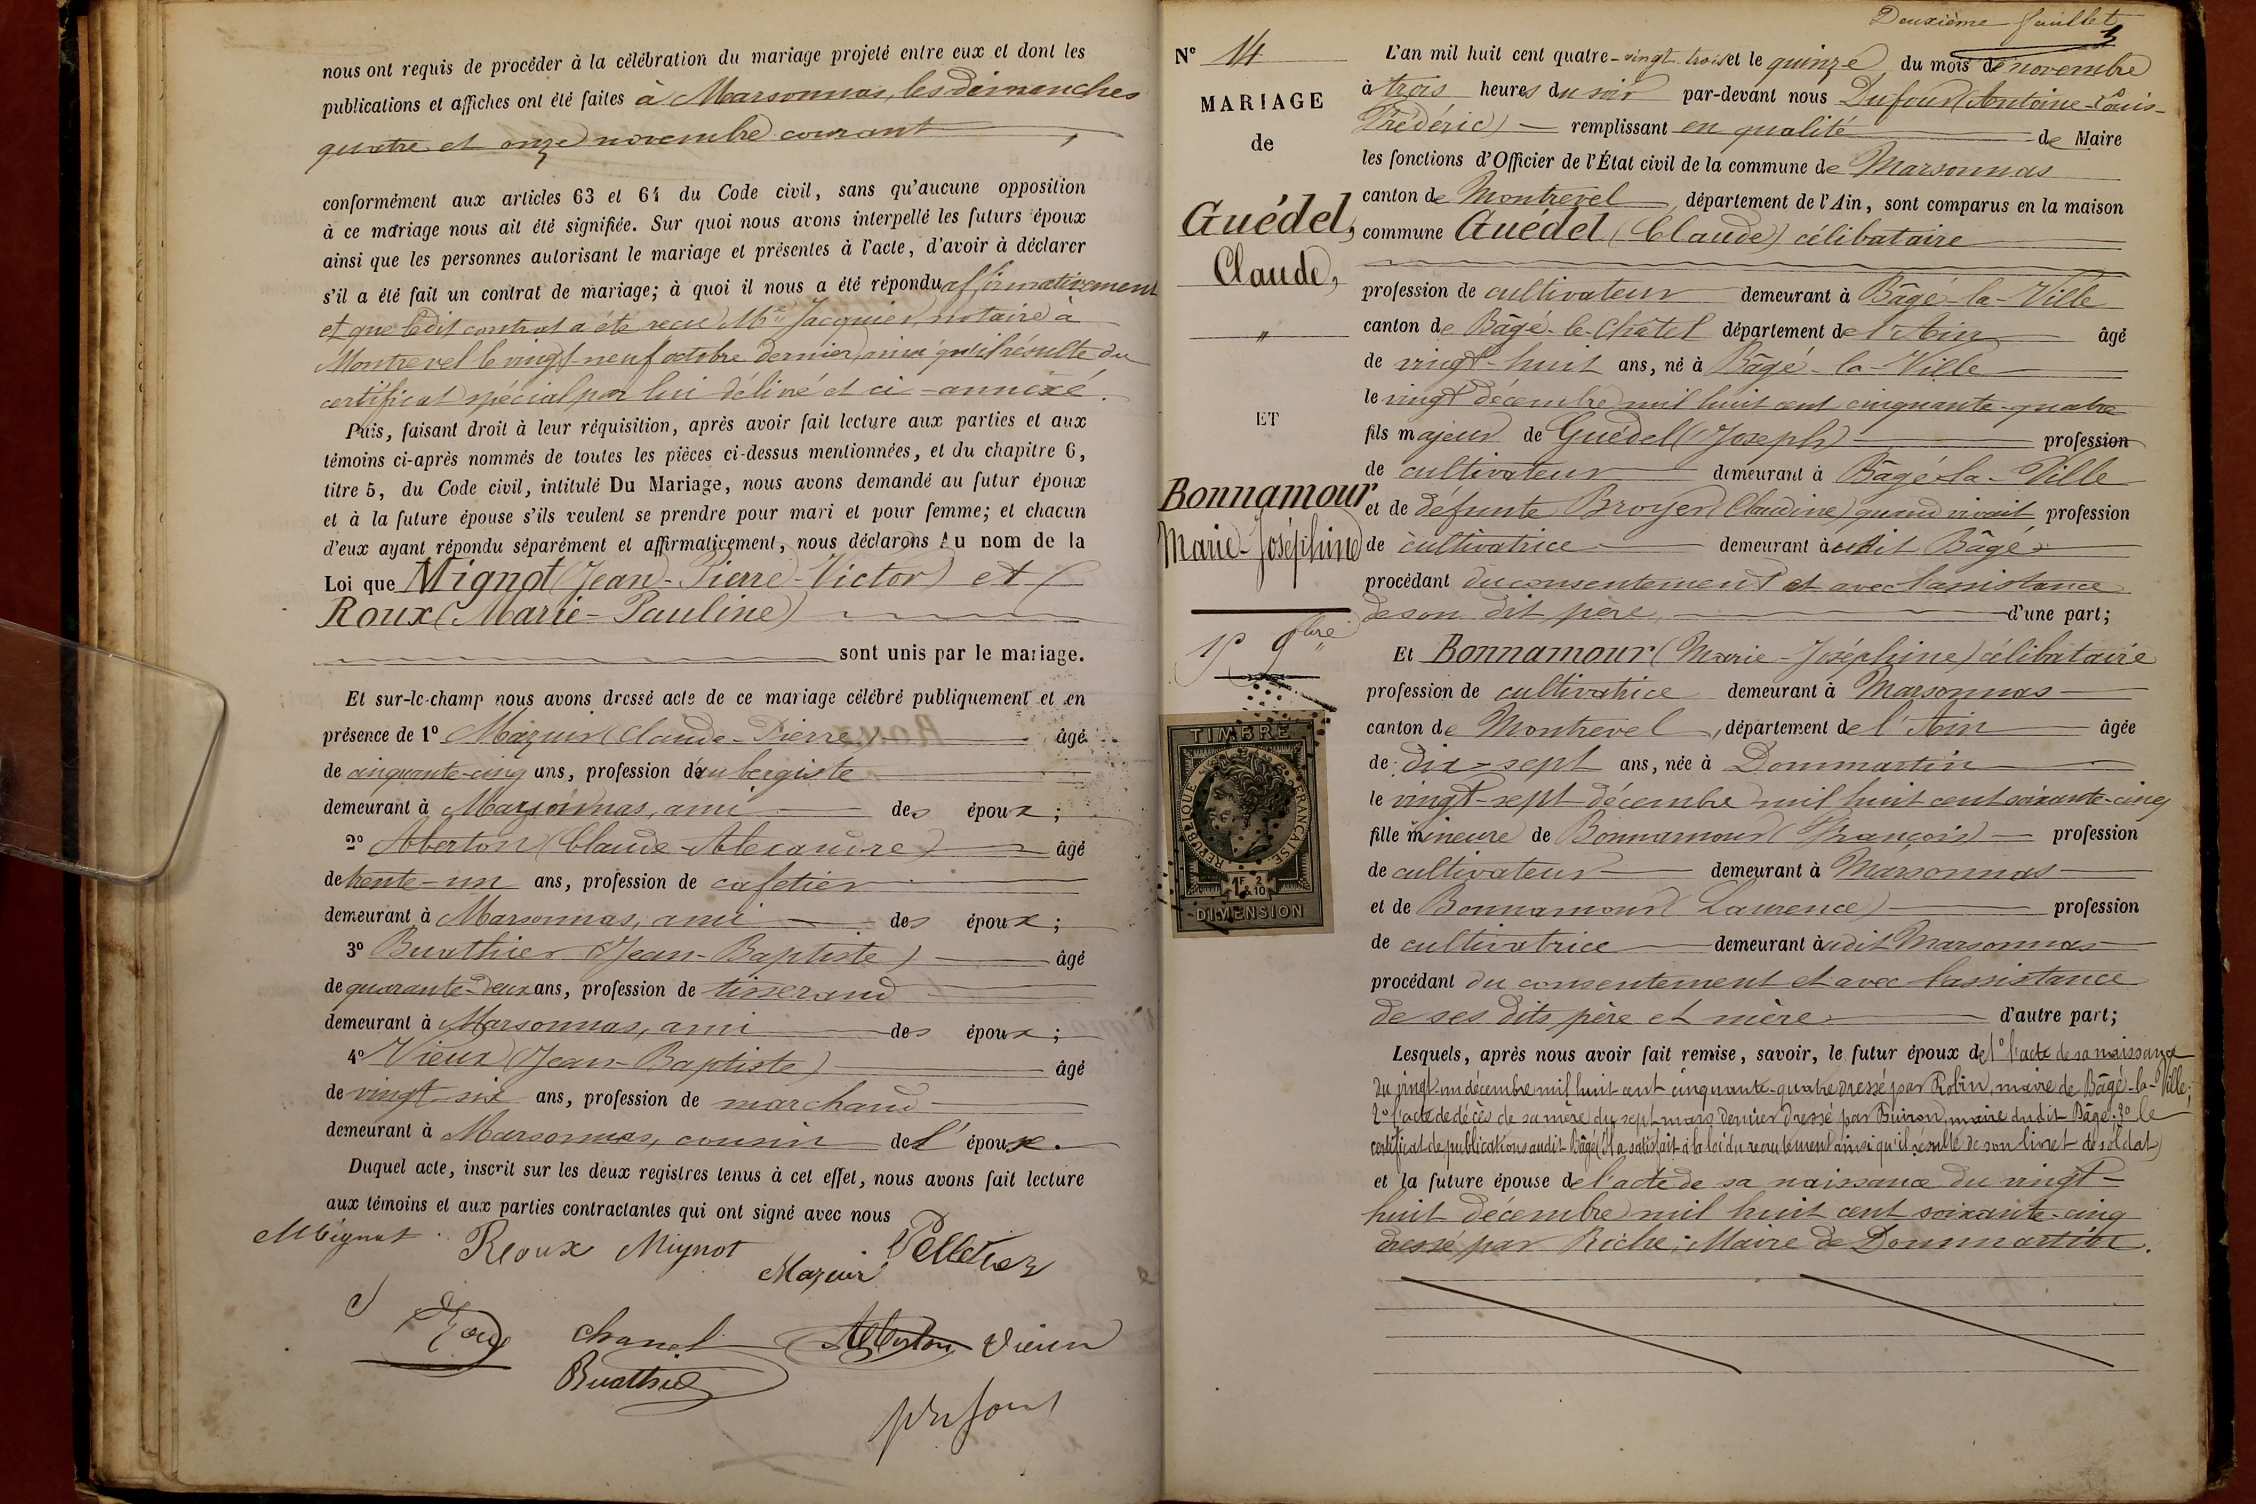 nous ont requis de procéder à la célébration du mariage projeté entre eux et dont les
publications et affiches ont été faites à Marsonnas, les dimanches
quatre et onze novembre courant
conformément aux articles 63 et 64 du Code civil, sans qu'aucune opposition
à ce mariage nous ait été signifiée. Sur quoi nous avons interpellé les futurs époux
ainsi que les personnes autorisant le mariage et présentes à l'acte, d'avoir à déclarer
s'il a été fait un contrat de mariage; à quoi il nous a été répondu affirmativement
et que ledit contrat a été reçu Me Jacquier, notaire à
Montrevel le vingt-neuf octobre dernier, ainsi qu'il résulte du
certificat spécial par lui délivré et ci-annexé.
Puis, faisant droit à leur réquisition, après avoir fait lecture aux parties et aux
témoins ci-après nommés de toutes les pièces ci-dessus mentionnées, et du chapitre 6,
titre 5, du Code civil, intitulé Du Mariage, nous avons demandé au futur époux
et à la future épouse s'ils veulent se prendre pour mari et pour femme; et chacun
d'eux ayant répondu séparément et affirmativement, nous déclarons Au nom de la
Loi que Mignot (Jean-Pierre-Victor) et
Roux (Marie-Pauline)
sont unis par le mariage.
Et sur-le-champ nous avons dressé acte de ce mariage célébré publiquement et en
présence de 1º Mazuir (Claude-Pierre) âgé
de cinquante-cinq ans, profession d'aubergiste
demeurant à Marsonnas, ami des époux;
2º Alberton (Claude-Alexandre) âgé
de trente-un ans, profession de cafetier
demeurant à Marsonnas, ami des époux;
3º Buathier (Jean-Baptiste) âgé
de quarante-deux ans, profession de tisserand
demeurant à Marsonnas, ami des époux;
4º Vieux (Jean-Baptiste) âgé
de vingt-six ans, profession de marchand
demeurant à Marsonnas, cousin de l'époux.
Duquel acte, inscrit sur les deux registres tenus à cet effet, nous avons fait lecture
aux témoins et aux parties contractantes qui ont signé avec nous
Mignot Roux Mignot Mazuir Pelletier
Chanel Alberton Vieux
Buathier
Dufour
Deuxième feuillet
Nº 14
MARIAGE
de
Guédel,
Claude,
"
ET
Bonnamour
Marie-Joséphine
15 9bre
TIMBRE
REPUBLIQUE FRANCAISE
1F 2/10
DIMENSION
L'an mil huit cent quatre-vingt trois et le quinze du mois de novembre
à trois heures du soir par-devant nous Dufour (Antoine-Louis-
Frédéric) remplissant en qualité de Maire
les fonctions d'Officier de l'État civil de la commune de Marsonnas
canton de Montrevel, département de l'Ain, sont comparus en la maison
commune Guédel (Claude) célibataire
profession de cultivateur demeurant à Bâgé-la-Ville
canton de Bâgé-le-Châtel département de l'Ain âgé
de vingt-huit ans, né à Bâgé-la-Ville
le vingt décembre mil huit cent cinquante-quatre
fils majeur de Guédel (Joseph) profession
de cultivateur demeurant à Bâgé-la-Ville
et de défunte Broyer (Claudine) quand vivait profession
de cultivatrice demeurant audit Bâgé
procédant du consentement et avec l'assistance
de son dit père d'une part;
Et Bonnamour (Marie-Joséphine) célibataire
profession de cultivatrice demeurant à Marsonnas
canton de Montrevel, département de l'Ain âgée
de dix-sept ans, née à Dommartin
le vingt-sept décembre mil huit cent soixante-cinq
fille mineure de Bonnamour (François) profession
de cultivateur demeurant à Marsonnas
et de Bonnamour (Laurence) profession
de cultivatrice demeurant audit Marsonnas
procédant du consentement et avec l'assistance
de ses dits père et mère d'autre part;
Lesquels, après nous avoir fait remise, savoir, le futur époux de 1º l'acte de sa naissance
du vingt-un décembre mil huit cent cinquante-quatre dressé par Robin, maire de Bâgé-la-Ville;
2º l'acte de décès de sa mère du sept mars dernier dressé par Buiron, maire dudit Bâgé. 3º le
certificat de publications audit Bâgé (Il a satisfait à la loi du recrutement ainsi qu'il résulte de son livret de soldat)
et la future épouse de l'acte de sa naissance du vingt-
huit décembre mil huit cent soixante-cinq
dressé par Riche, Maire de Dommartin.